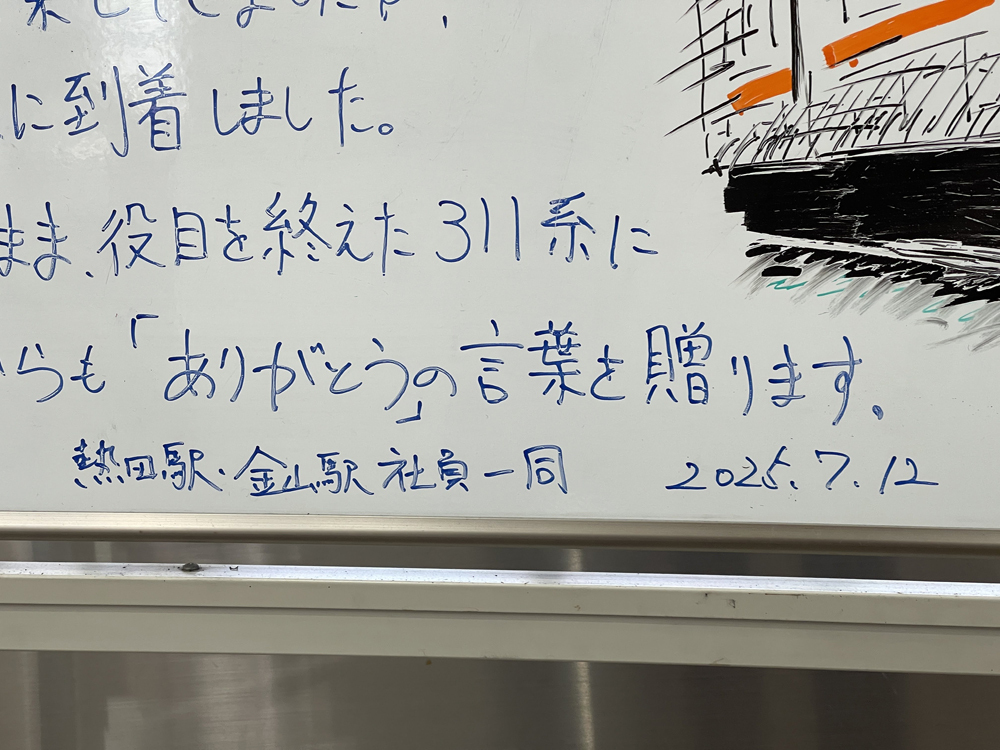 に到着しました。
まま、役目を終えた311系に
らも「ありがとう」の言葉を贈ります。
熱田駅・金山駅 社員一同 2025.7.12